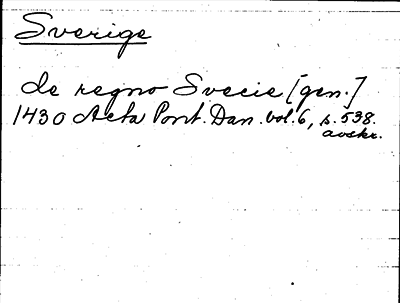 Sverige
de regno Svecie [gen.]
1430 Acta Pont. Dan. vol. 6, s. 538.
avskr.